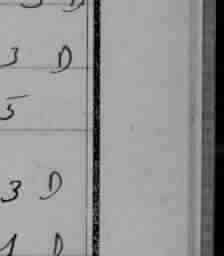 3 D
5
3 D
1 D